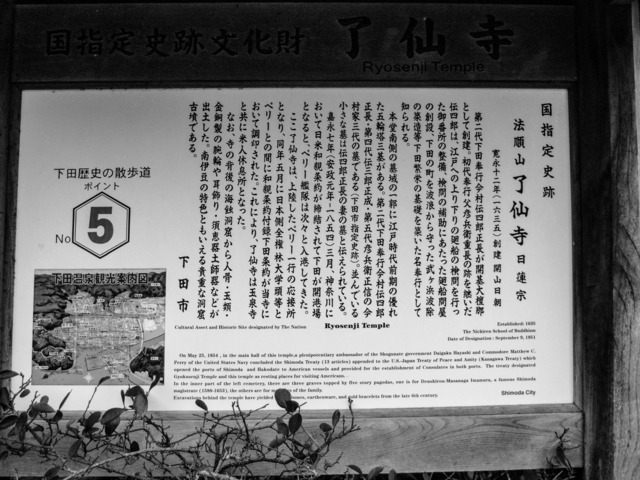 国指定史跡文化財 了仙寺
Ryosenji Temple
国指定史跡
法順山 了仙寺 日蓮宗
寛永十二年(一六三五)創建 開山日朝
第二代下田奉行今村伝四郎正長が開基大檀那
として創建。初代奉行父彦兵衛重長の跡を継いだ
伝四郎は、江戸への上り下りの廻船の検問を行っ
た御番所の整備、検問の補助にあたった廻船問屋
の創設、下田の町を波浪から守った武ヶ浜波除
の築造等下田繁栄の基礎を築いた名奉行として
知られる。
本堂南側の墓域の一部に江戸時代前期の優れ
た五輪塔三基がある。第二代下田奉行今村伝四郎
正長・第四代伝三郎正成・第五代彦兵衛正信の今
村家三代の墓である(下田市指定史跡)。並んでいる
小さな墓は伝四郎正長の妻の墓と伝えられている。
嘉永七年(安政元年・一八五四)三月、神奈川に
おいて日米和親条約が締結されて下田が開港場
となると、ペリー艦隊は次々と入港してきた。
ここ了仙寺は、上陸したペリー一行の応接所
となり、同年五月に日本側全権林大学頭等と
ペリーとの間に和親条約付録下田条約が当寺に
おいて調印された。これにより、了仙寺は玉泉寺
と共に米人休息所となった。
なお、寺の背後の海蝕洞窟から人骨・玉類・
金銅製の腕輪や耳飾り・須恵器土師器などが
出土した。南伊豆の特色ともいえる貴重な洞窟
古墳である。
下田市
下田歴史の散歩道
ポイント
No 5
下田温泉観光案内図
Cultural Asset and Historic Site designated by The Nation
Ryosenji Temple
Established: 1635
The Nichiren School of Buddhism
Date of Designation: September 9, 1951
On May 25, 1854, in the main hall of this temple,a plenipotentiary ambassador of the Shogunate government Daigaku Hayashi and Commodore Matthew C.
Perry of the United States Navy concluded the Shimoda Treaty (13 articles) appended to the U.S.-Japan Treaty of Peace and Amity (Kanagawa Treaty) which
opened the ports of Shimoda and Hakodate to American vessels and provided for the establishment of Consulates in both ports. The treaty designated
Gyokusenji Temple and this temple as resting places for visiting Americans.
In the inner part of the left cemetery, there are three graves topped by five story pagodas, one is for Denshiro-Masanaga Imamura, a famous Shimoda
magistrate (1586-1653), the others are for members of the family.
Excavations behind the temple have yielded bones, earthenware, and gold bracelets from the late 6th century.
Shimoda City